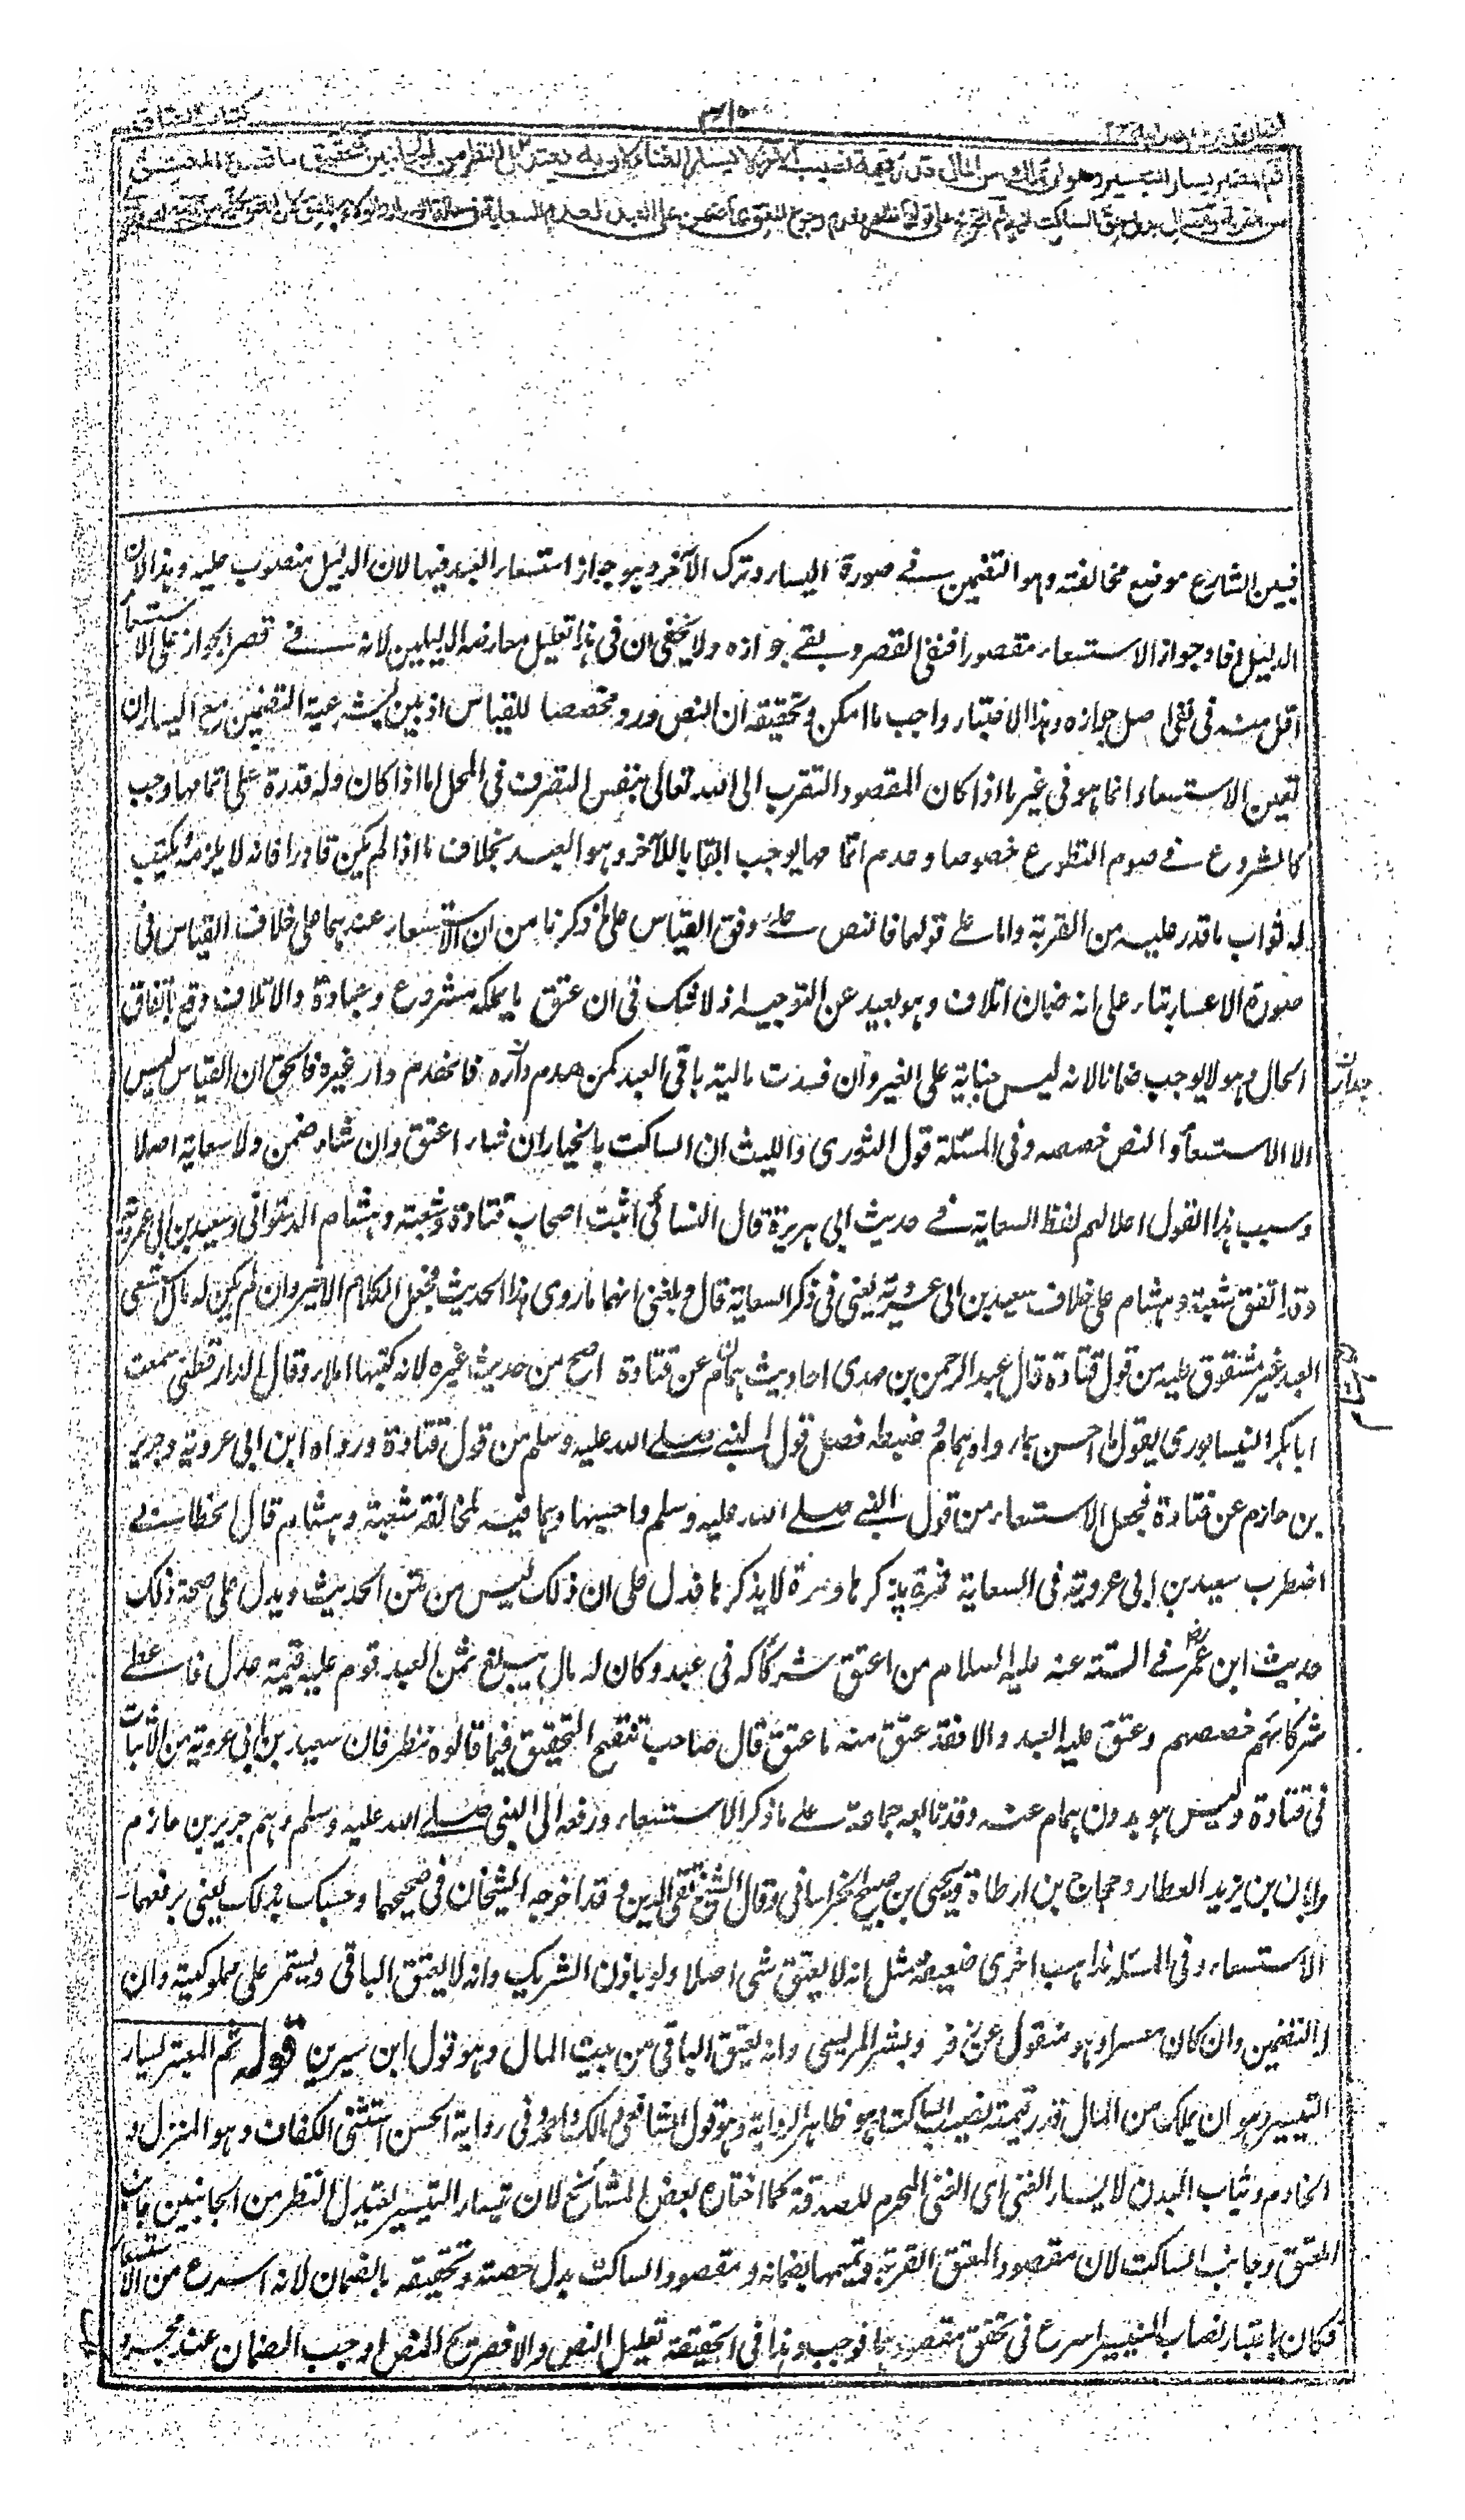 كتاب العتاق
ثم المعتبر يسار التيسير وهو ان يملك من المال قدر قيمة نصيب الآخر لا يسار الغنى لان به يعتدل النظر من الجانبين بتحقيق ما قصده المعتق
من القربة وايصال بدل حق الساكت اليه ثم التخريج على قولهما ظاهر فعدم رجوع المعتق بما ضمن على العبد لعدم السعاية في حالة اليسار والولاء للمعتق لان العتق كله من جهته
فبين الشارع موضع مخالفته وهو التضمين في صورة اليسار وترك الآخر وهو جواز استسعاء العبد فيها لان الدليل منصوب عليه وهذا لان
الدليل افاد جواز الاستسعاء مقصورا فنفى القصر وبقى جوازه ولا يخفى ان فى هذا تعليل معارضة الدليلين لانه فى قصر الجواز على الاستسعاء
اقل منه فى نفى اصل جوازه وهذا الاعتبار واجب ما امكن وتحقيقه ان النص ورد مخصصا للقياس اذ بين بشرعية التضمين مع اليسار ان
تعين الاستسعاء انما هو فى غير ما اذا كان المقصود التقرب الى الله تعالى بنفس التصرف فى المحل اما اذا كان وله قدرة على اتمامها وجب
كالشروع فى صوم التطوع خصوصا وعدم اتمامها يوجب ابقاء الآخر وهو العبد بخلاف ما اذا لم يكن قادرا فانه لا يلزمه يكتب
له ثواب ما قدر عليه من القربة واما على قولهما فالنص على وفق القياس على ما ذكرنا من ان الاستسعاء عندهما على خلاف القياس فى
صورة الاعسار بناء على انه ضمان اتلاف وهو بعيد عن التوجيه اذ لا شك فى ان عتق ما يملكه مشروع وعبادة والاتلاف وقع باتفاق
الحال وهو لا يوجب ضمانا لانه ليس جناية على الغير وان فسدت مالية باقى العبد كمن هدم داره فانهدم دار غيره فالحق ان القياس ليس
جداران
الا الاستسعاء والنص خصصه وفى المسئلة قول الثورى والليث ان الساكت بالخيار ان شاء اعتق وان شاء ضمن ولا سعاية اصلا
وسبب هذا القول اعلالهم لفظ السعاية فى حديث ابى هريرة قال النسائى اثبت اصحاب قتادة شعبة وهشام الدستوائى وسعيد بن ابى عروبة
وقد اتفق شعبة وهشام على خلاف سعيد بن ابى عروبة يعنى فى ذكر السعاية قال وبلغنى ان هماما روى هذا الحديث فجعل الكلام الاخير وان لم يكن له مال استسعى
العبد غير مشقوق عليه من قول قتادة قال عبد الرحمن بن مهدى احاديث همام عن قتادة اصح من حديث غيره لانه كتبها املاء وقال الدارقطنى سمعت
ابا بكر النيسابورى يقول ما احسن ما رواه همام ضبطه فصل قول النبى صلى الله عليه وسلم من قول قتادة ورواه ابن ابى عروبة وجرير
بن حازم عن قتادة فجعل الاستسعاء من قول النبى صلى الله عليه وسلم واحسبهما وهما فيه لمخالفة شعبة وهشام قال الخطابى
اضطرب سعيد بن ابى عروبة فى السعاية فمرة يذكرها ومرة لا يذكرها فدل على ان ذلك ليس من متن الحديث ويدل على صحة ذلك
حديث ابن عمر فى الستة عنه عليه السلام من اعتق شركا له فى عبد وكان له مال يبلغ ثمن العبد قوم عليه قيمة عدل فاعطى
شركائهم حصصهم وعتق عليه العبد والا فقد عتق منه ما عتق قال صاحب تنقيح التحقيق فيما قالوه نظر فان سعيد بن ابى عروبة من الاثبات
فى قتادة وليس هو بدون همام عنه وقد تابعه جماعة على ما ذكر الاستسعاء ورفعه الى النبى صلى الله عليه وسلم وهم جرير بن حازم
وابان بن يزيد العطار وحجاج بن ارطاة ويحيى بن صبيح الخراسانى وقال الشيخ تقى الدين وقد اخرجه الشيخان فى صحيحهما وحسبك بذلك يعنى برفعهما
الاستسعاء وفى المسئلة مذاهب اخرى ضعيفة مثل انه لا يعتق شئ اصلا ولو باذن الشريك وانه لا يعتق الباقى ويستمر على مملوكيته وان
له التضمين وان كان معسرا وهو منقول عن زفر وبشر المريسى وانه يعتق الباقى من بيت المال وهو قول ابن سيرين قوله ثم المعتبر يسار
التيسير وهو ان يملك من المال قدر قيمة نصيب الساكت وهو ظاهر الرواية وهو قول الشافعى ومالك واحمد وفى رواية الحسن استثنى الكفاف وهو المنزل و
الخادم وثياب البدن لا يسار الغنى اى الغنى المحرم للصدقة كما اختاره بعض المشائخ لان بيسار التيسير يعتدل النظر من الجانبين جانب
المعتق وجانب الساكت لان مقصود المعتق القربة وتتميمها بضمانه ومقصود الساكت بدل حصته وتحقيقه بالضمان لانه اسرع من الاستسعاء
فكان باعتبار نصاب التيسير اسرع فى تحقق مقصودهما فوجب وهذا فى الحقيقة تعليل النص والا فصريح النص اوجب الضمان عند مجرد